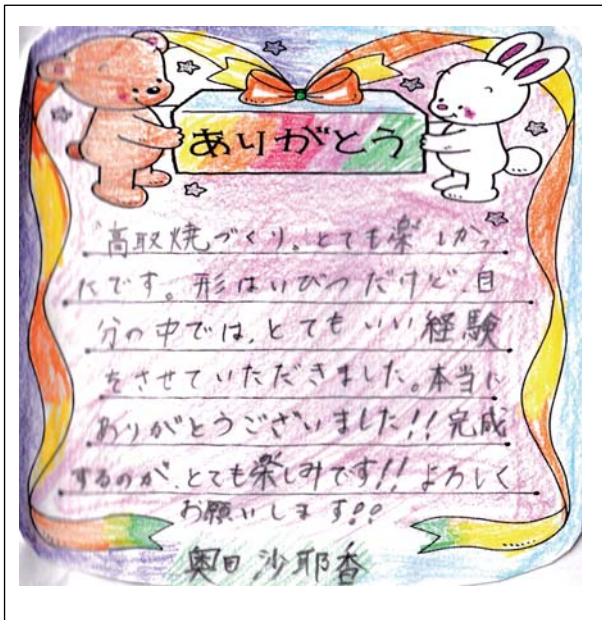 ありがとう
高取焼づくり。とても楽しかっ
たです。形はいびつだけど、自
分の中では、とてもいい経験
をさせていただきました。本当に
ありがとうございました!!完成
するのが、とても楽しみです!!よろしく
お願いします!!
奥田 沙耶香